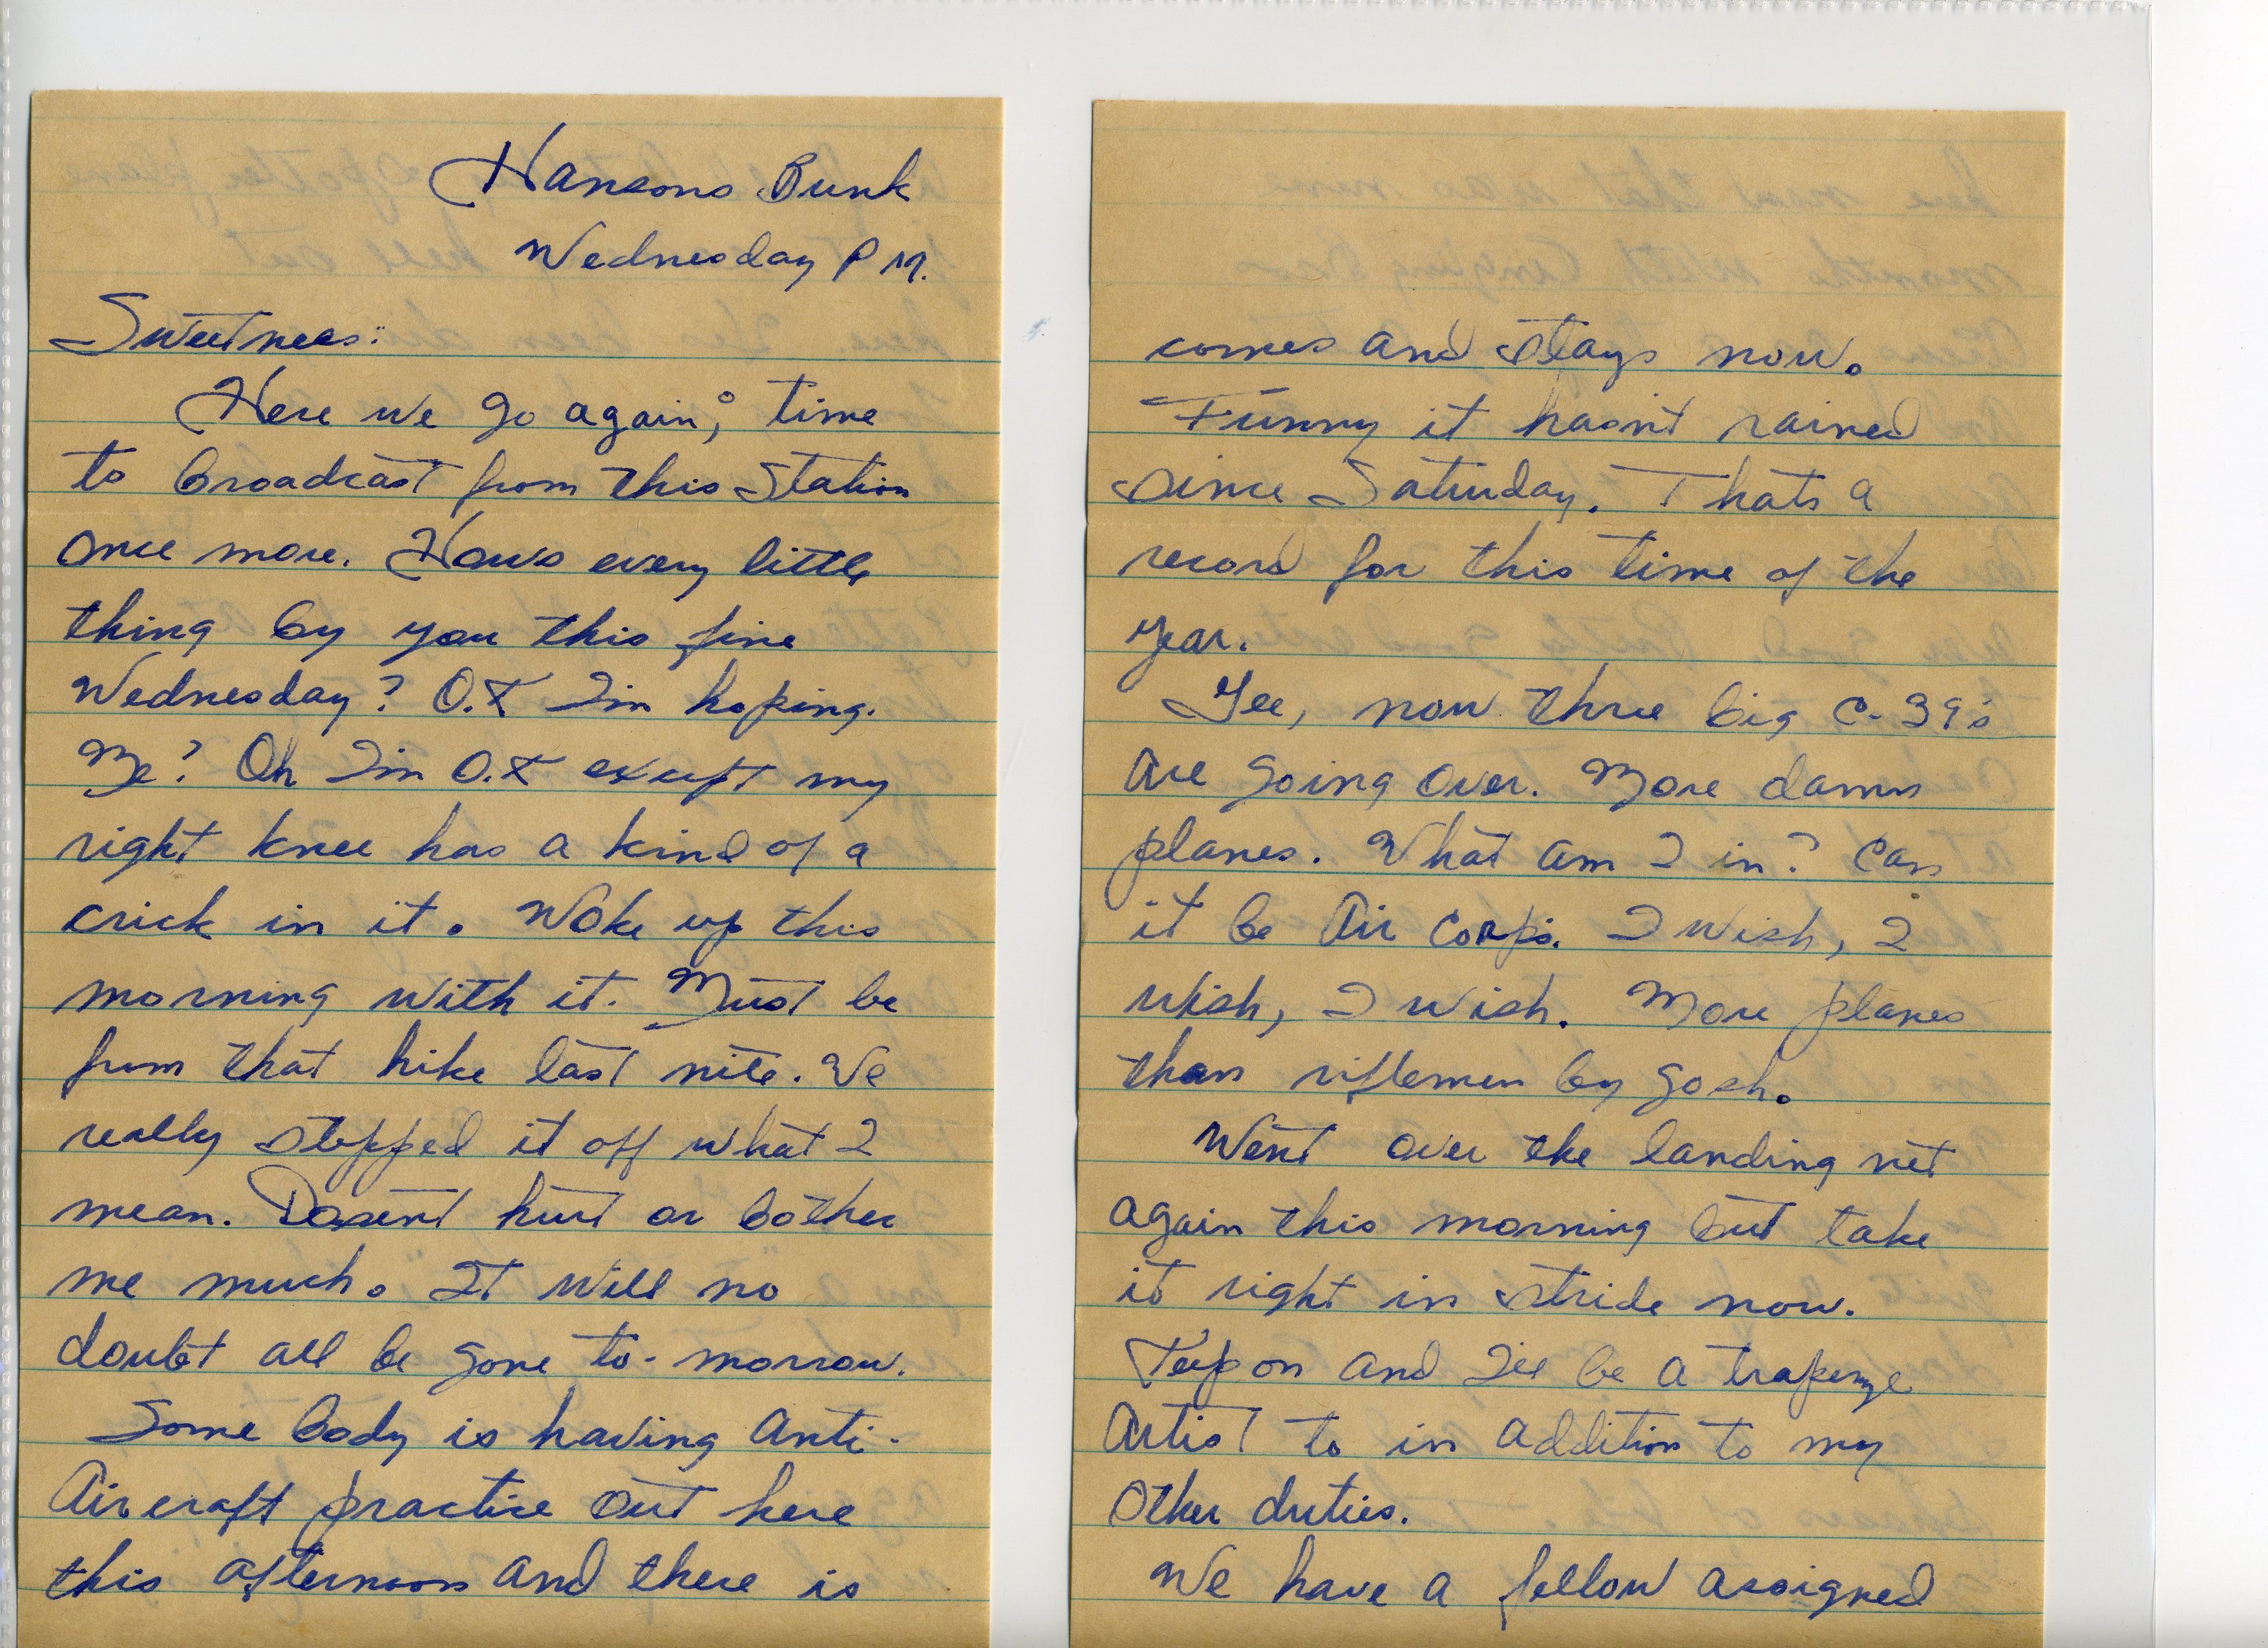 Hansons Bunk
Wednesday P M.
Sweetness:
Here we go again; time
to broadcast from this station
once more. Hows every little
thing by you this fine
Wednesday? O.K I'm hoping.
Me? Oh I'm O.K except my
right knee has a kind of a
crick in it. Woke up this
morning with it. Must be
from that hike last nite. We
really stepped it off what I
mean. Dosent hurt or bother
me much. It will no
doubt all be gone to-morrow.
Some body is having Anti-
Aircraft practice out here
this afternoon and there is
comes and stays now.
Funny it hasn't rained
since Saturday. Thats a
record for this time of the
year.
Gee, now three big C-39's
are going over. More damn
planes. What am I in? Can
it be Air Corps. I wish, I
wish, I wish. More planes
than riflemen by gosh.
Went over the landing net
again this morning but take
it right in stride now.
Keep on and I'll be a trapeze
artist to in addition to my
other duties.
We have a fellow assigned